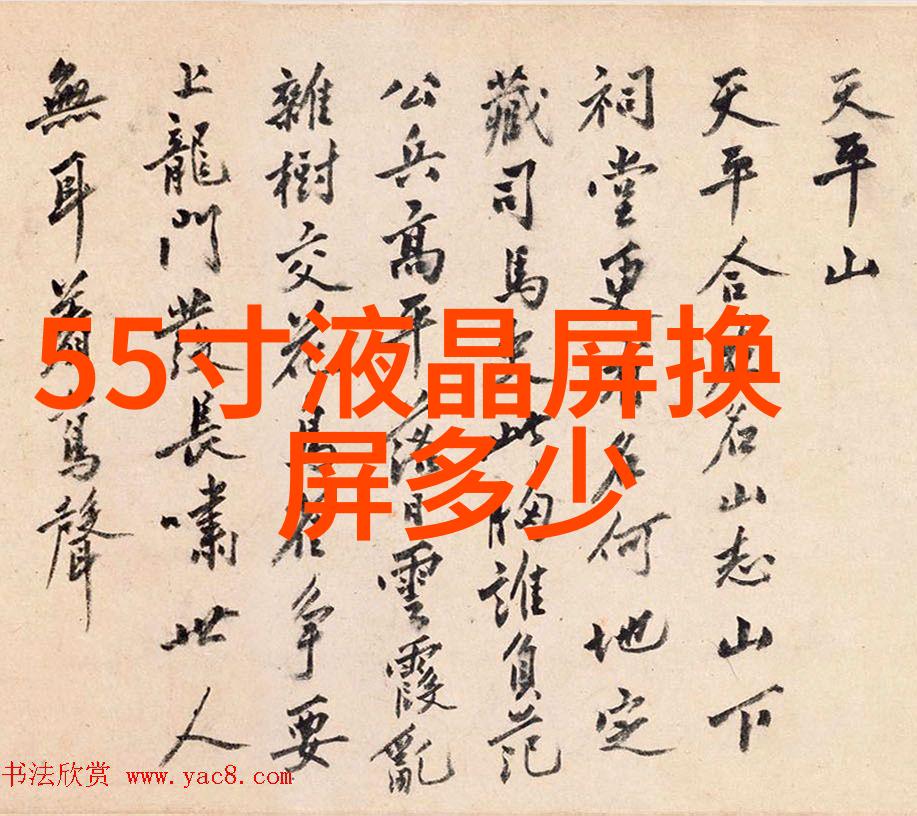 天平山
天平合名山志山下
祠堂更名何地定
藏司馬此胸誰負范
公兵高平落日雲霞亂
雜樹交花爭要
上龍門發長嘯世人
無耳着聲
55寸液晶屏换
屏多少
书法欣赏 www.yac8.com